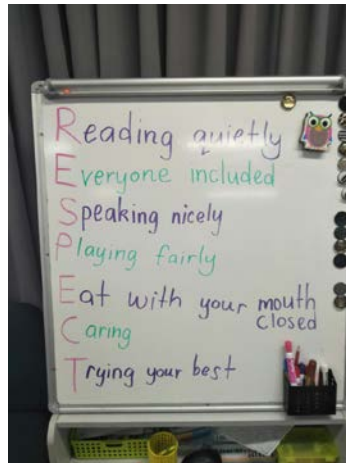 Reading quietly
Everyone included
Speaking nicely
Playing fairly
Eat with your mouth
closed
Caring
Trying your best